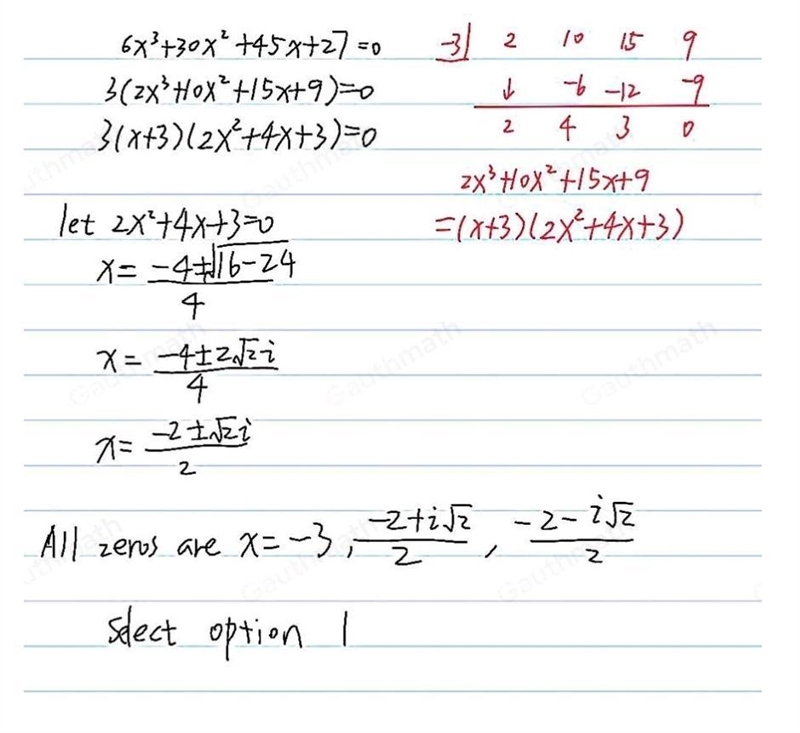 6x³+30x²+45x+27=0
3(2x³+10x²+15x+9)=0
3(x+3)(2x²+4x+3)=0
-3| 2 10 15 9
↓ -6 -12 -9
2 4 3 0
2x³+10x²+15x+9
=(x+3)(2x²+4x+3)
let 2x²+4x+3=0
x= (-4±√(16-24))/4
x= (-4±2√2i)/4
x= (-2±√2i)/2
All zeros are x=-3, (-2+i√2)/2, (-2-i√2)/2
Select option 1
Gauthmath